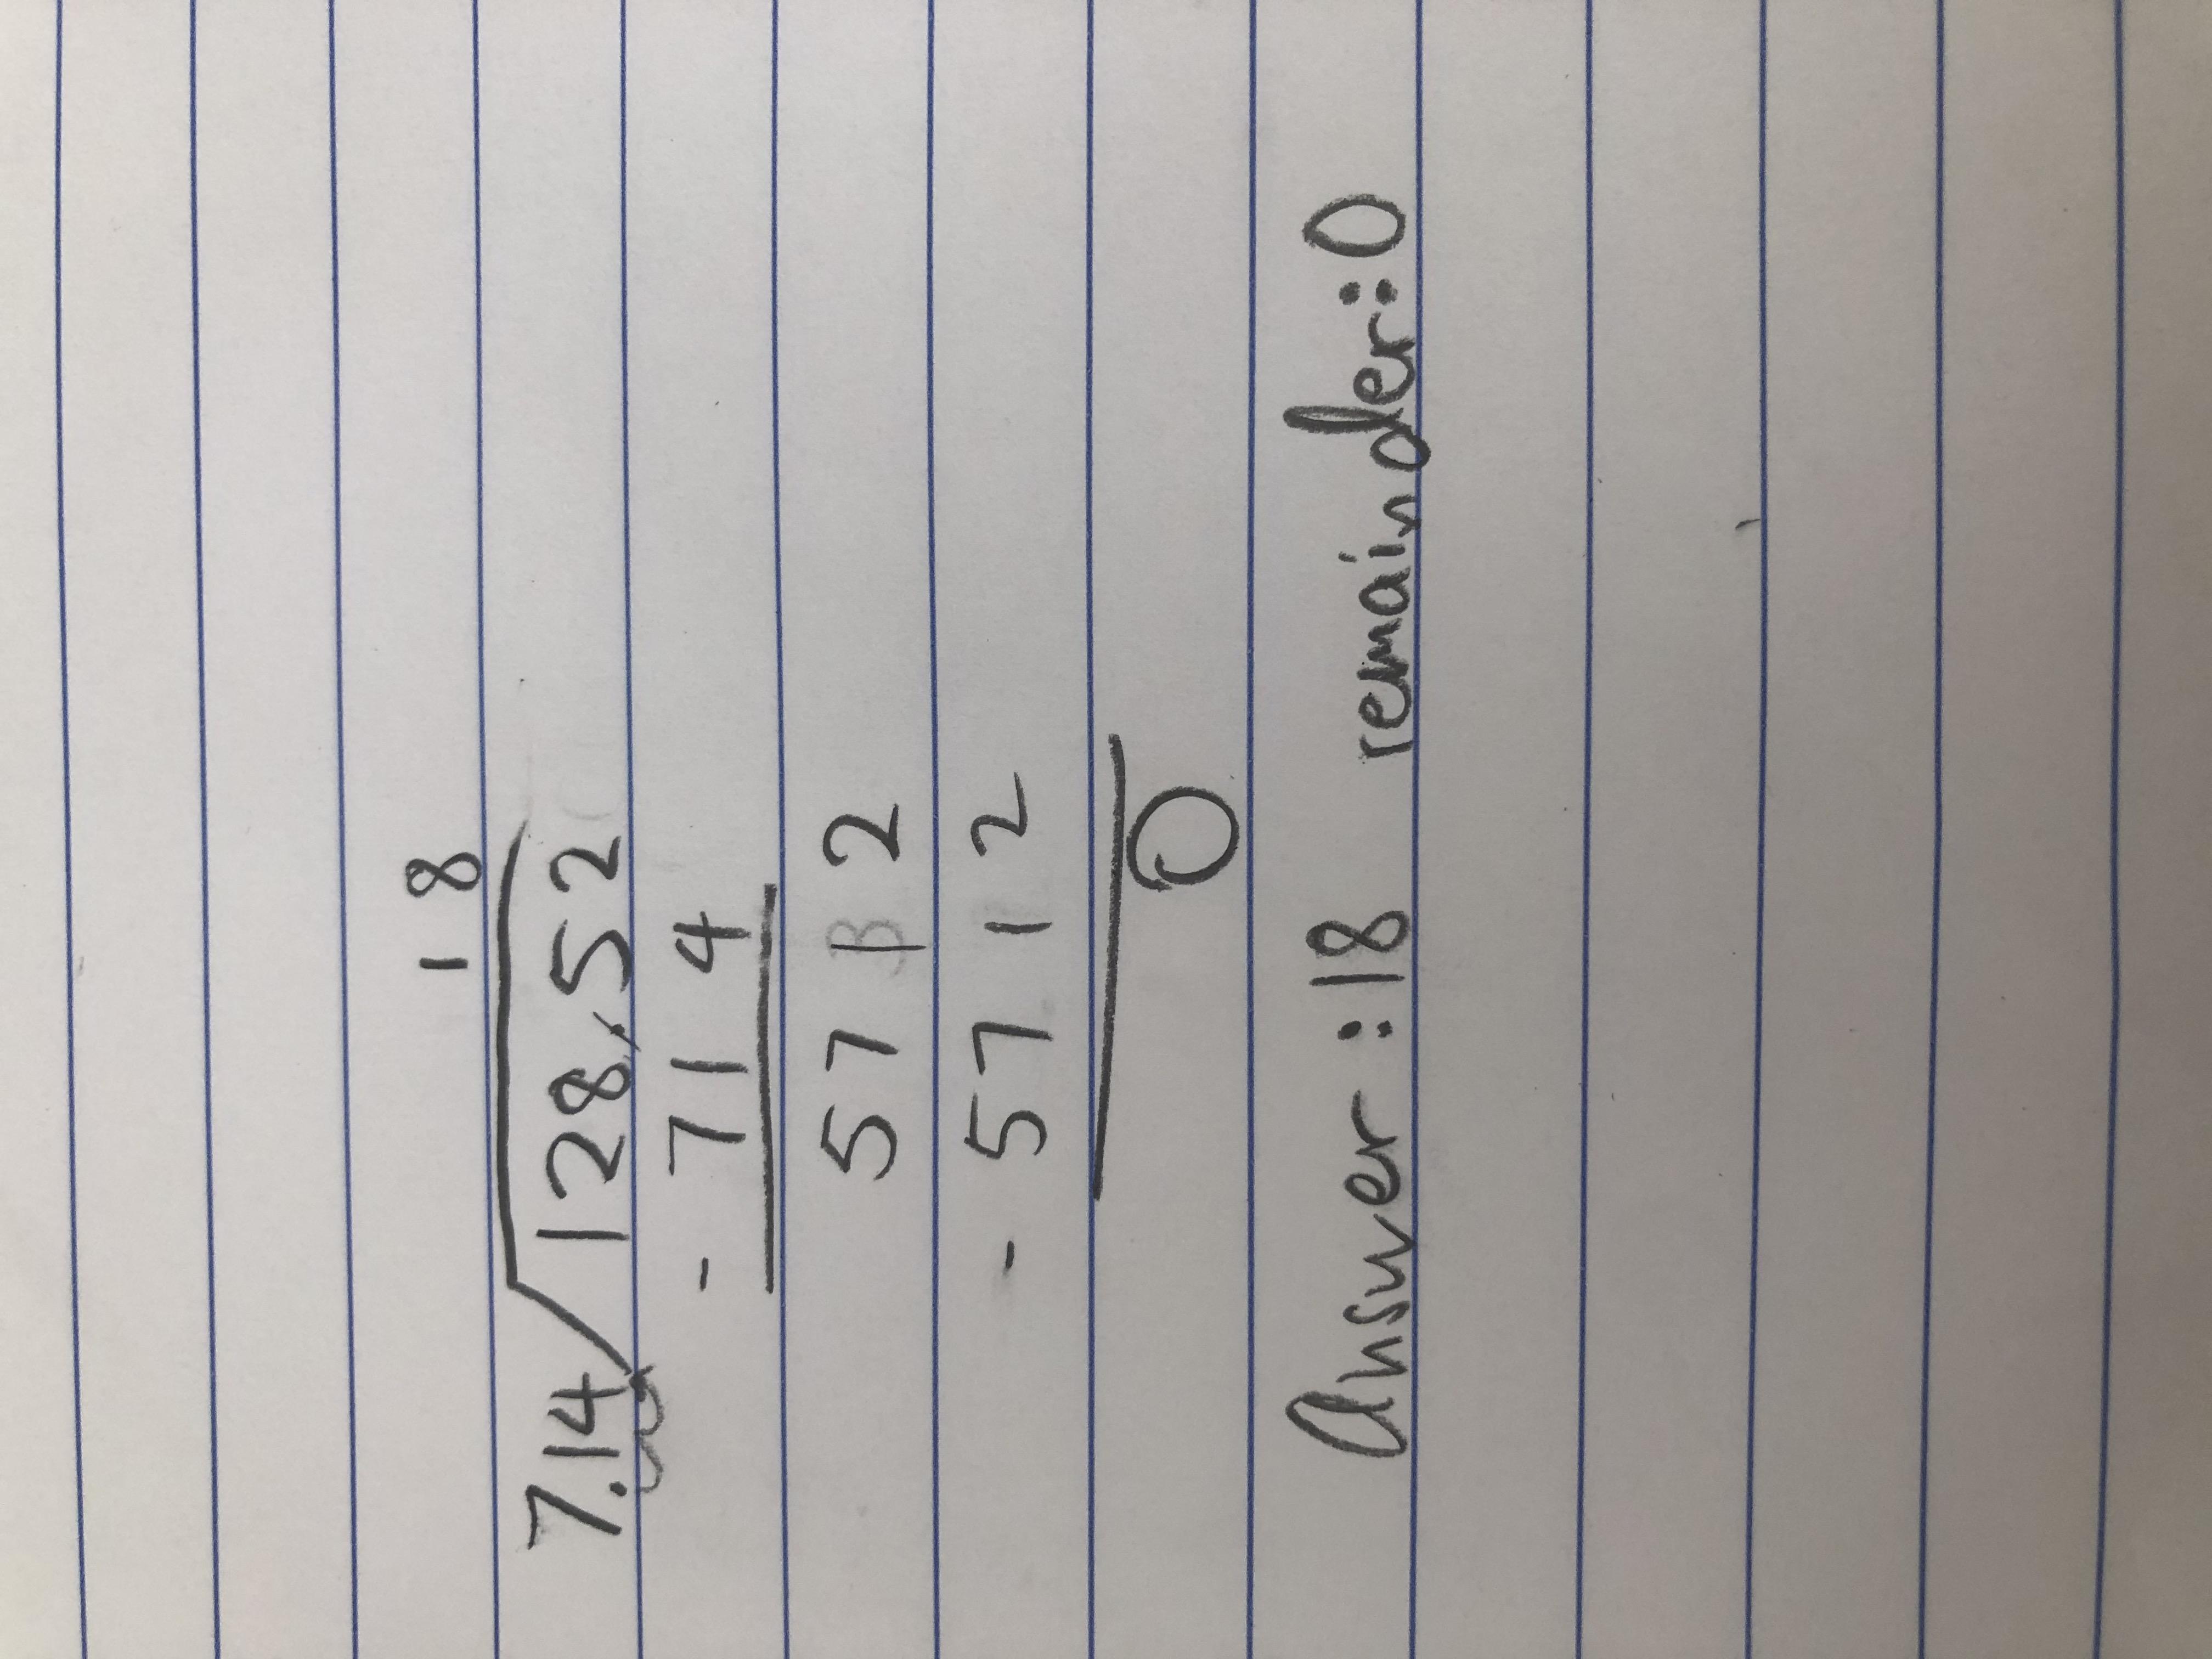 18
7.14/128.52
- 714
5712
- 5712
0
Answer : 18 remainder: 0